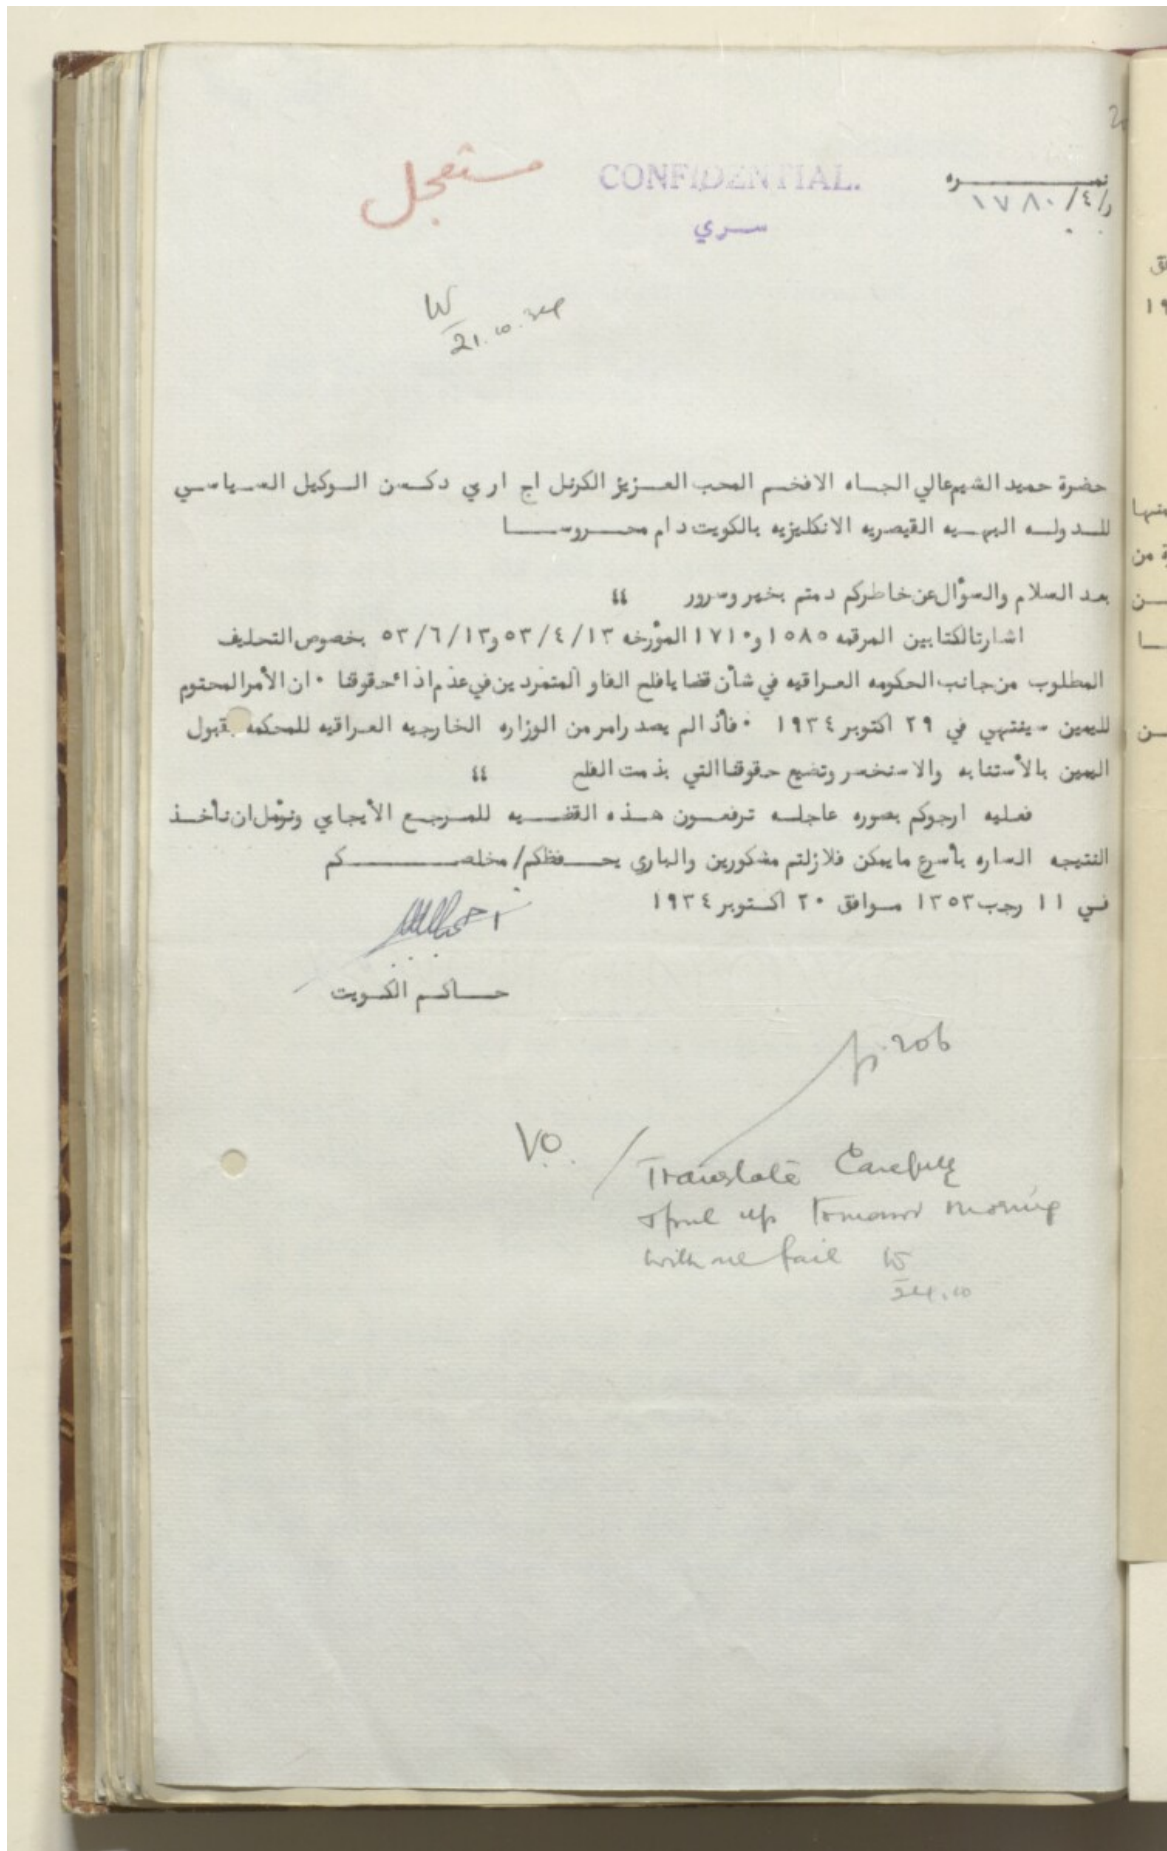 نمره
ر/٤/١٧٨٠
CONFIDENTIAL.
سري
مستعجل
W
21.10.34
حضرة حميد الشيم عالي الجاه الافخم المحب العزيز الكرنل اج اري دكسن الوكيل السياسي
للدوله البهيه القيصريه الانكليزيه بالكويت دام محروسا
بعد السلام والسؤال عن خاطركم دمتم بخير وسرور ،،
اشارتا لكتابين المرقمه ١٥٨٥ و١٧١٠ المؤرخه ٥٣/٤/١٣ و٥٣/٦/١٣ بخصوص التحليف
المطلوب من جانب الحكومه العراقيه في شأن قضايا فلح الفاو المتمردين في عدم اذاء حقوقنا ٠ ان الأمر المحتوم
لليمين سينتهي في ٢٩ اكتوبر ١٩٣٤ ٠ فأذا لم يصدر امر من الوزاره الخارجيه العراقيه للمحكمه بقبول
اليمين بالأستنابه والا سنخسر وتضيع حقوقنا التي بذمت الفلح ،،
فعليه ارجوكم بصوره عاجله ترفعون هذه القضيه للمرجع الأيجابي ونؤمل ان نأخذ
النتيجه الساره بأسرع ما يمكن فلا زلتم مشكورين والباري يحفظكم/ مخلصكم
في ١١ رجب ١٣٥٣ موافق ٢٠ اكتوبر ١٩٣٤
حاكم الكويت
p. 206
V.O.
Translate Carefully
& put up tomorrow morning
with no fail W
24.10
ق
١٩
منها
ة من
ن
ا
ن